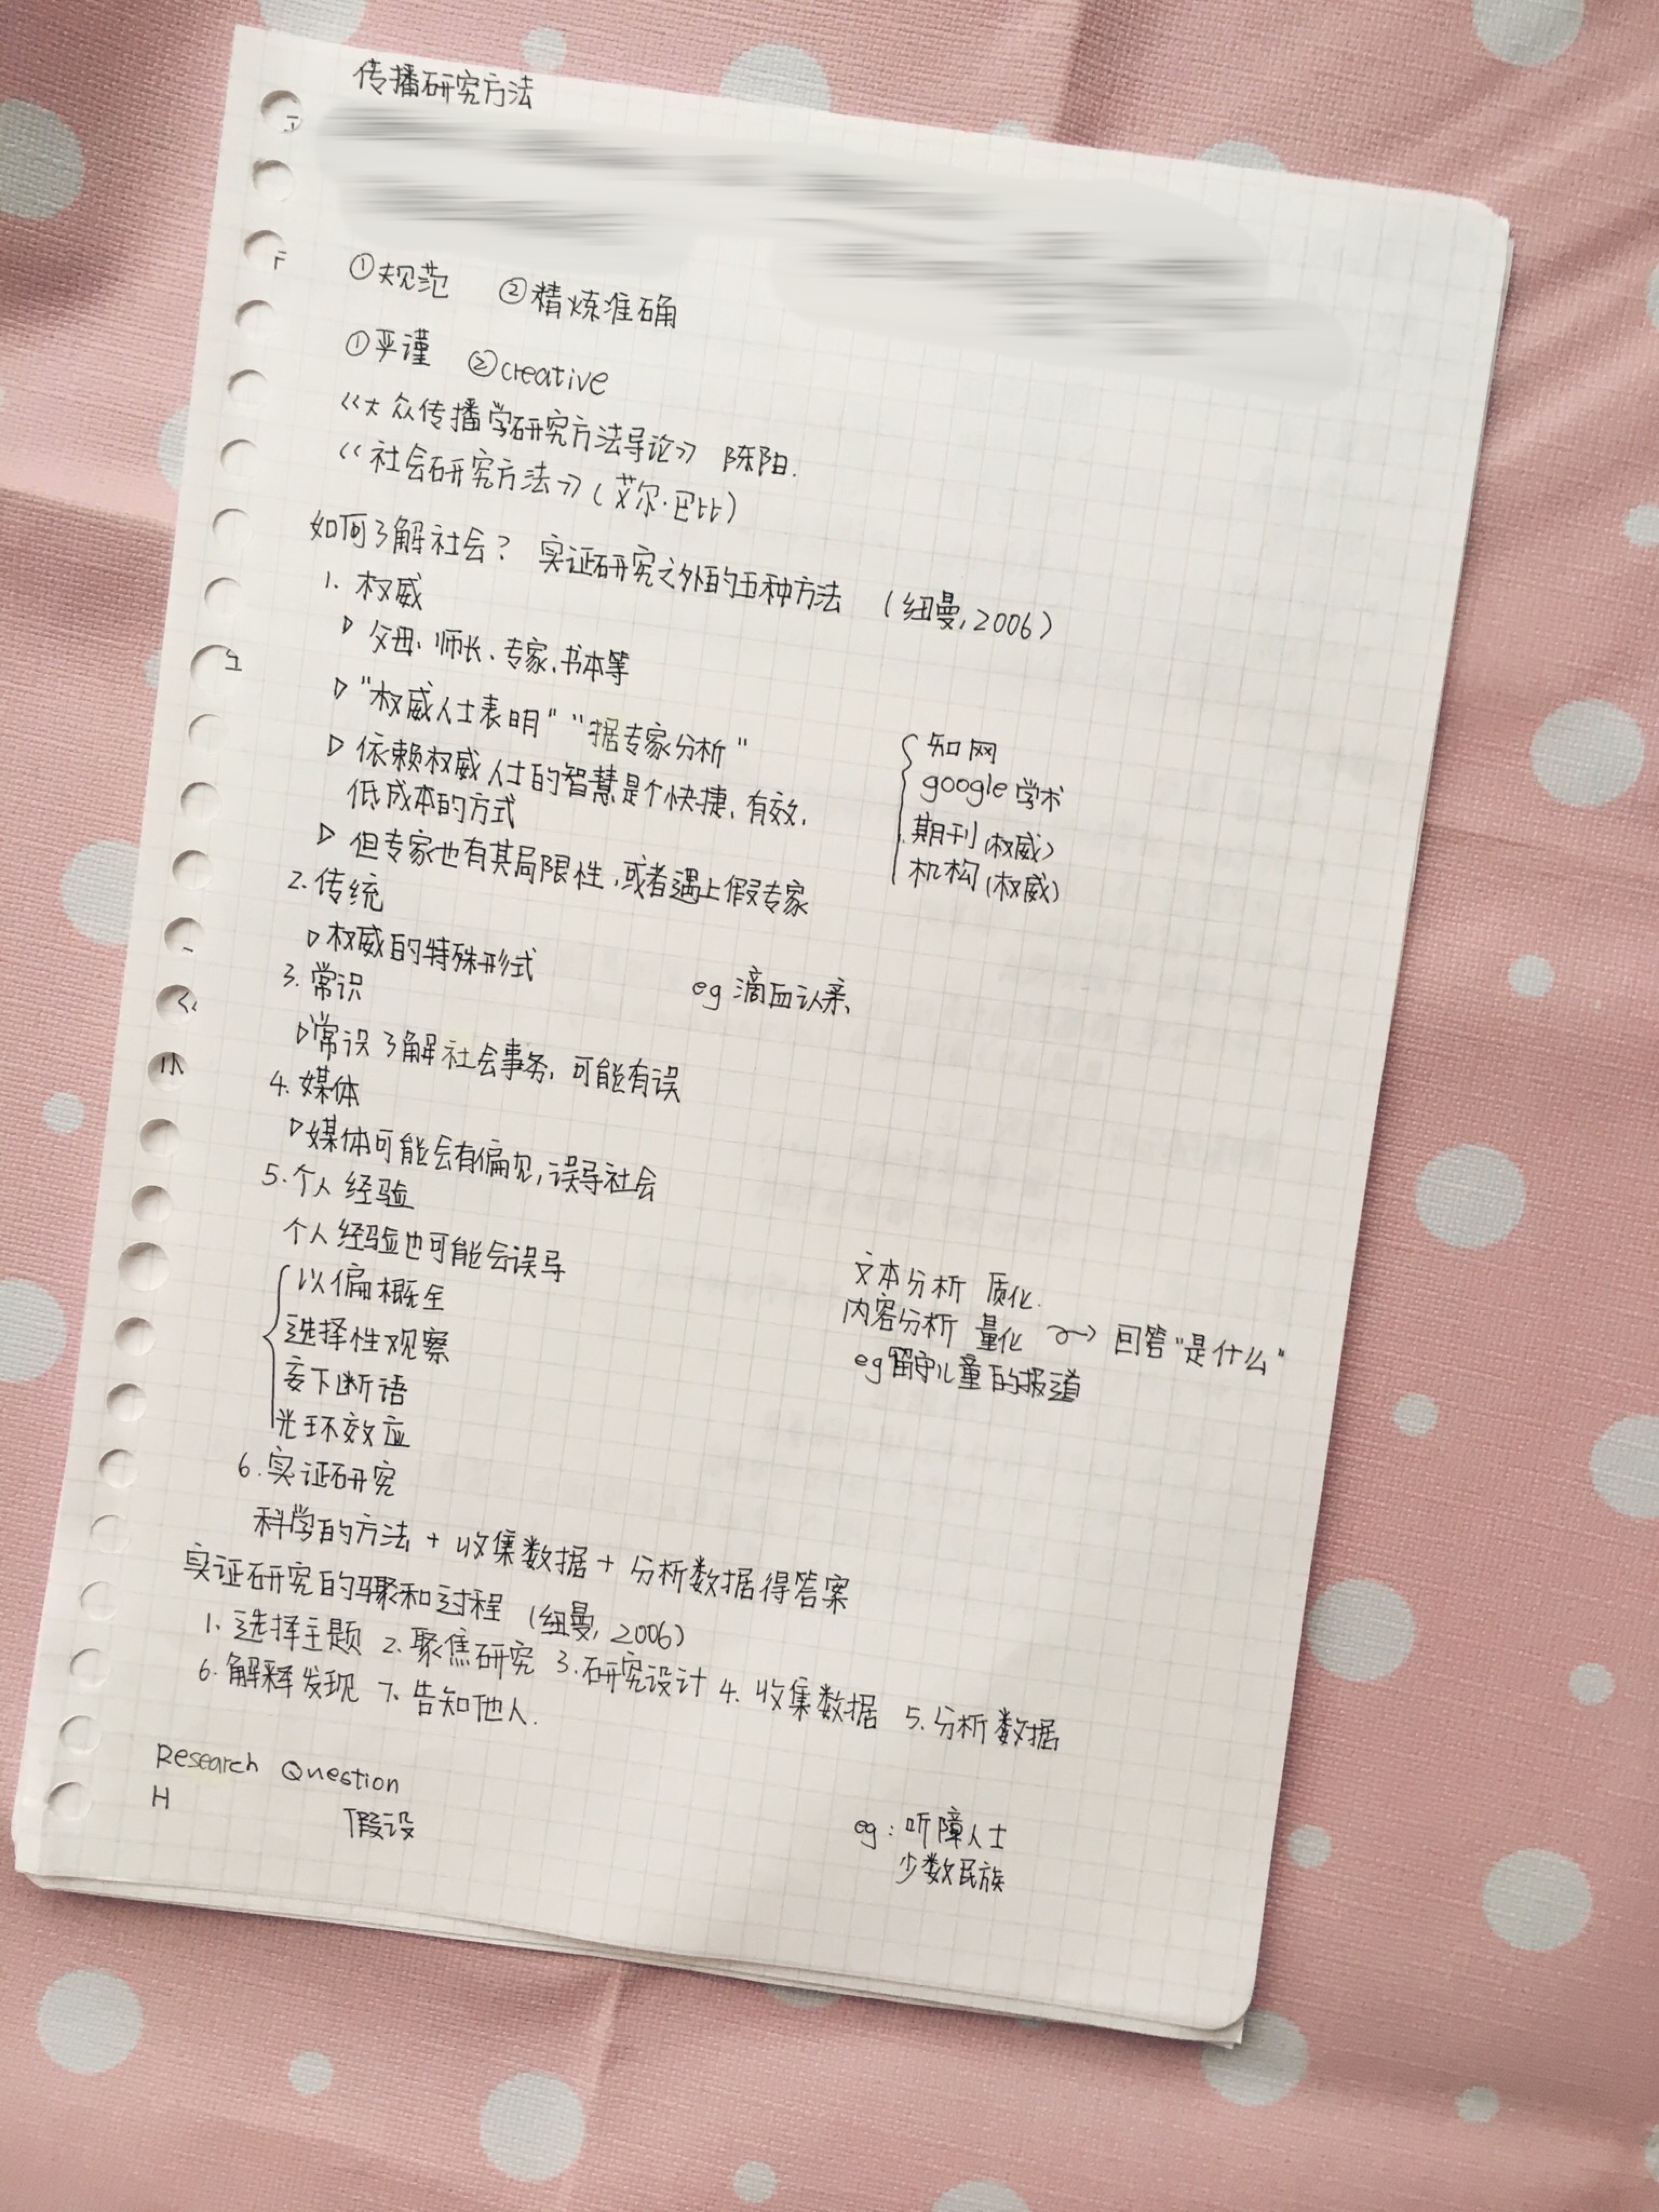 传播研究方法
①规范 ②精炼准确
①严谨 ②creative
《大众传播学研究方法导论》 陈阳.
《社会研究方法》(艾尔·巴比)
如何了解社会? 实证研究之外的五种方法 (纽曼,2006)
1. 权威
▷ 父母、师长、专家、书本等
▷ "权威人士表明" "据专家分析"
▷ 依赖权威人士的智慧是个快捷、有效、
低成本的方式
▷ 但专家也有其局限性,或者遇上假专家
知网
google 学术
期刊(权威)
机构(权威)
2. 传统
▷ 权威的特殊形式
3. 常识 eg 滴血认亲、
▷常识了解社会事务,可能有误
4. 媒体
▷媒体可能会有偏见,误导社会
5. 个人经验
个人经验也可能会误导
以偏概全
选择性观察
妄下断语
光环效应
文本分析 质化.
内容分析 量化 → 回答"是什么"
eg留守儿童的报道
6. 实证研究
科学的方法 + 收集数据 + 分析数据得答案
实证研究的骤和过程 (纽曼, 2006)
1. 选择主题 2. 聚焦研究 3. 研究设计 4. 收集数据 5. 分析数据
6. 解释发现 7. 告知他人.
Research Question
H 假设
eg: 听障人士
少数民族